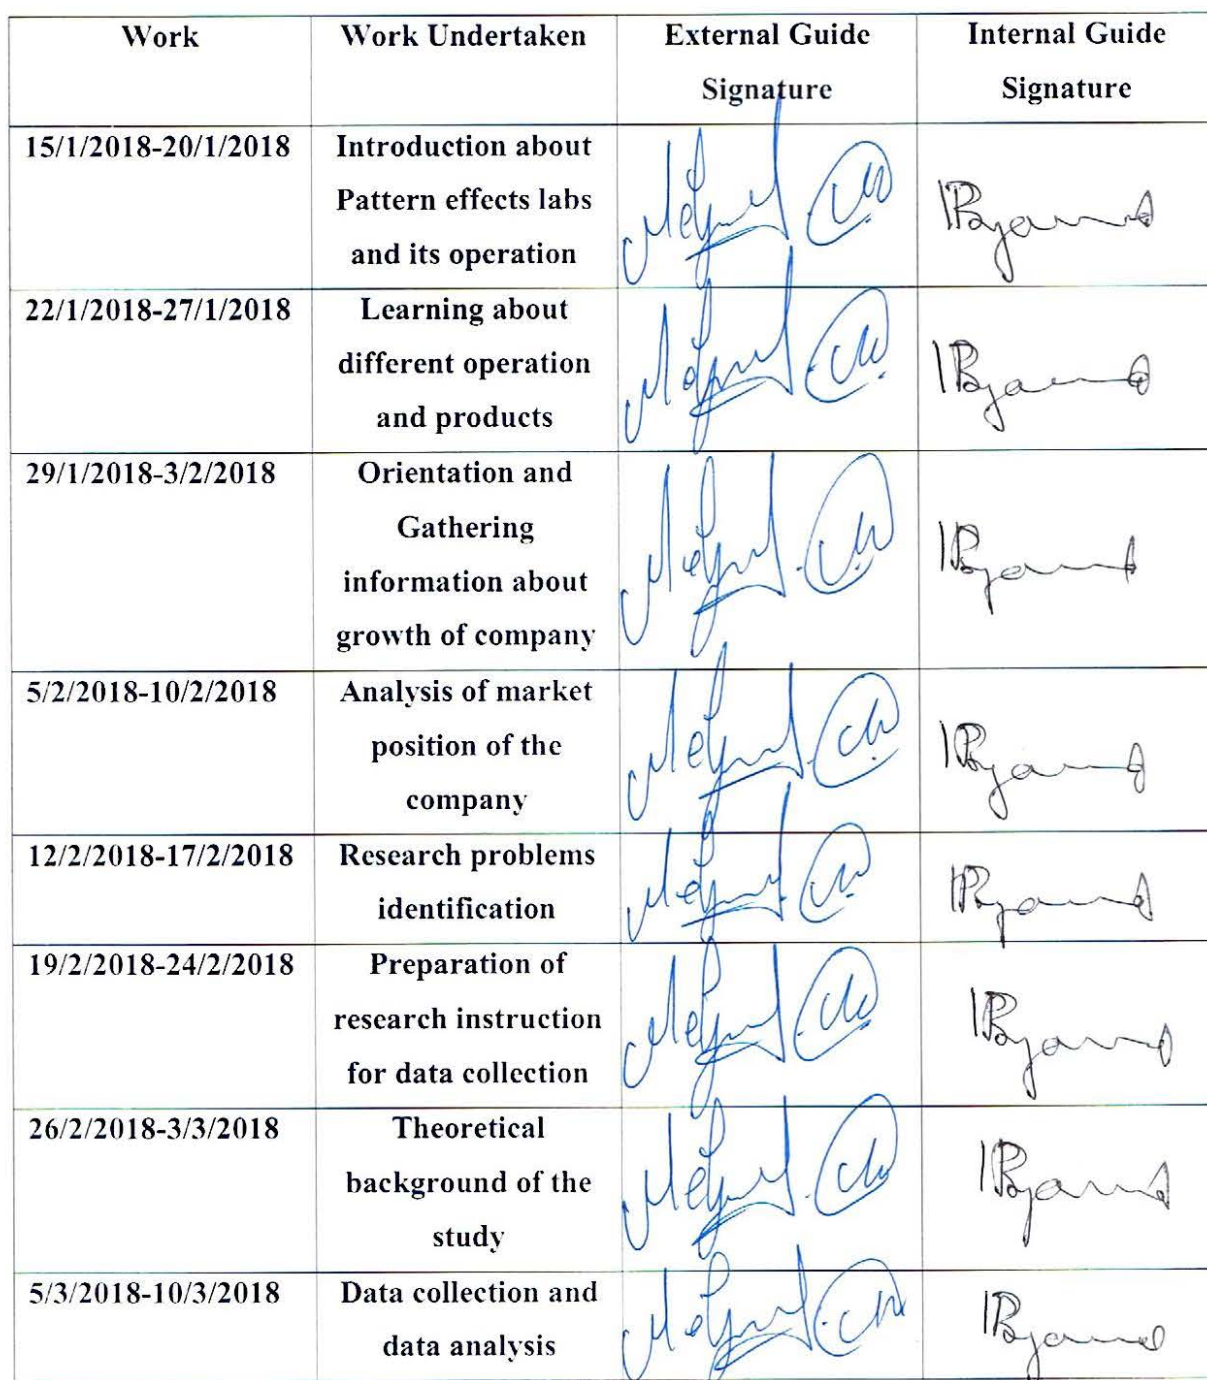 Work
Work Undertaken
External Guide
Signature
Internal Guide
Signature
15/1/2018-20/1/2018
Introduction about
Pattern effects labs
and its operation
22/1/2018-27/1/2018
Learning about
different operation
and products
29/1/2018-3/2/2018
Orientation and
Gathering
information about
growth of company
5/2/2018-10/2/2018
Analysis of market
position of the
company
12/2/2018-17/2/2018
Research problems
identification
19/2/2018-24/2/2018
Preparation of
research instruction
for data collection
26/2/2018-3/3/2018
Theoretical
background of the
study
5/3/2018-10/3/2018
Data collection and
data analysis